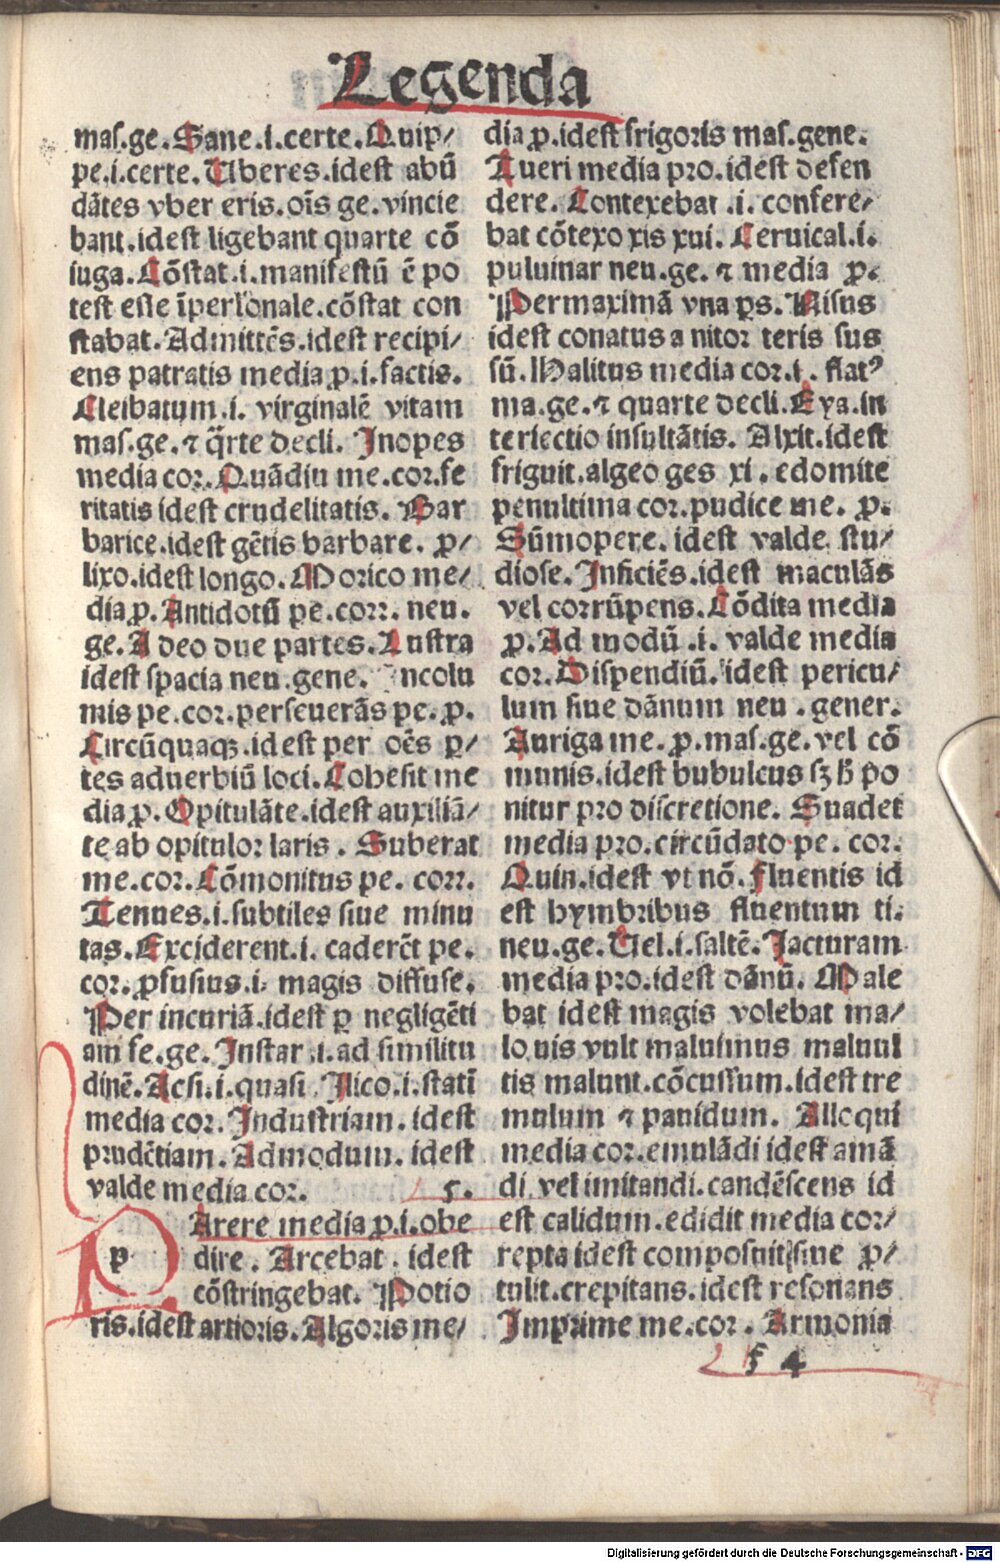 Legenda
mas.ge.Sane.i.certe.Quip/
pe.i.certe.Uberes.idest abū
dātes vber eris.oīs ge.vincie
bant.idest ligebant quarte cō
iuga.Cōstat.i.manifestū ē po
test esse īpersonale.cōstat con
stabat.Admittēs.idest recipi/
ens patratis media ꝓ.i.factis.
Cleibatum.i. virginalē vitam
mas.ge.⁊ q̄rte decli. Inopes
media cor.Quādiu me.cor.fe
ritatis idest crudelitatis. Bar
barice.idest gētis barbare. ꝓ/
lixo.idest longo.Morico me/
dia ꝓ.Antidotū pe.corr. neu.
ge.A deo due partes.Lustra
idest spacia neu.gene. Incolu
mis pe.cor.perseuerās pe.ꝓ.
Circūquaqꝫ.idest per oēs p/
tes aduerbiū loci.Cohesit me
dia ꝓ.Opitulāte.idest auxiliā/
te ab opitulor laris. Suberat
me.cor.Cōmonitus pe. corr.
Tenues.i.subtiles siue minu
tas.Exciderent.i. caderēt pe.
cor.ꝓfusius.i. magis diffuse.
Per incuriā.idest ꝑ negligēti
am fe.ge.Instar .i.ad similitu
dinē.Acsi.i.quasi Ilico.i.statī
media cor.Industriam. idest
prudētiam.Admodum. idest
valde media cor. 5.
p Arere media ꝓ.i.obe
dire. Arcebat. idest
cōstringebat. Potio
ris.idest artioris.Algoris me/
dia ꝓ.idest frigoris mas.gene.
Tueri media pro.idest defen
dere. Contexebat .i. confere/
bat cōtexo xis xui. Ceruical.i.
puluinar neu.ge. ⁊ media ꝓ.
Permaximā vna ps. Nisus
idest conatus a nitor teris sus
sū.Halitus media cor.i. flatꝰ
ma.ge.⁊ quarte decli.Eya.in
teriectio insultātis. Alxit.idest
friguit.algeo ges xi. edomite
penultima cor.pudice me. ꝓ.
Sūmopere. idest valde stu/
diose. Inficiēs.idest maculās
vel corrūpens.Cōdita media
ꝓ.Ad modū .i. valde media
cor.Dispendiū. idest pericu/
lum siue dānum neu.gener.
Auriga me.ꝓ.mas.ge.vel cō
munis.idest bubulcus sꝫ h̄ po
nitur pro discretione. Suadet
media pro.circūdato pe.cor.
Quin.idest vt nō.fluentis id
est hymbribus fluentum ti.
neu.ge.Uel.i.saltē.Iacturam
media pro.idest dānū. Male
bat idest magis volebat ma/
lo uis vult maluimus maluul
tis malunt.cōcussum.idest tre
mulum ⁊ pauidum. Alloqui
media cor.emulādi idest amā
di vel imitandi.candēscens id
est calidum.edidit media cor/
repta idest composuit siue ꝓ/
tulit.crepitans.idest resonans
Imprime me.cor. Armonia
f 4
Digitalisierung gefördert durch die Deutsche Forschungsgemeinschaft - DFG